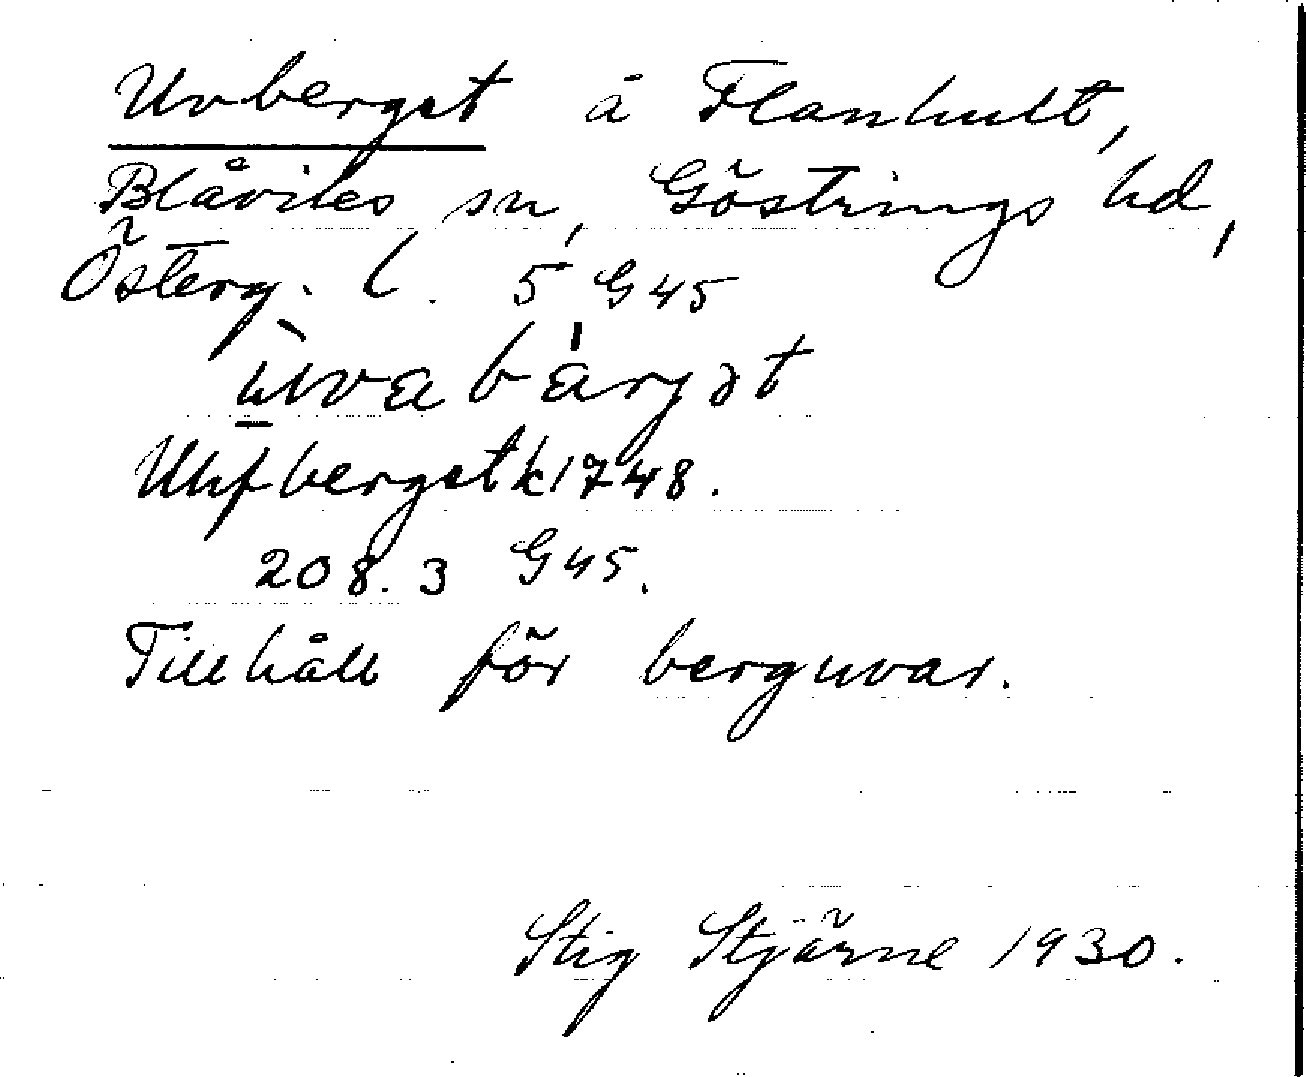 Uvberget å Flanhult,
Blåviks sn, Göstrings hd,
Österg. l. 5 G45
ùvabárjət
Uhfberget k 1748.
208.3 G45.
Tillhåll för berguvar.
Stig Stjärne 1930.